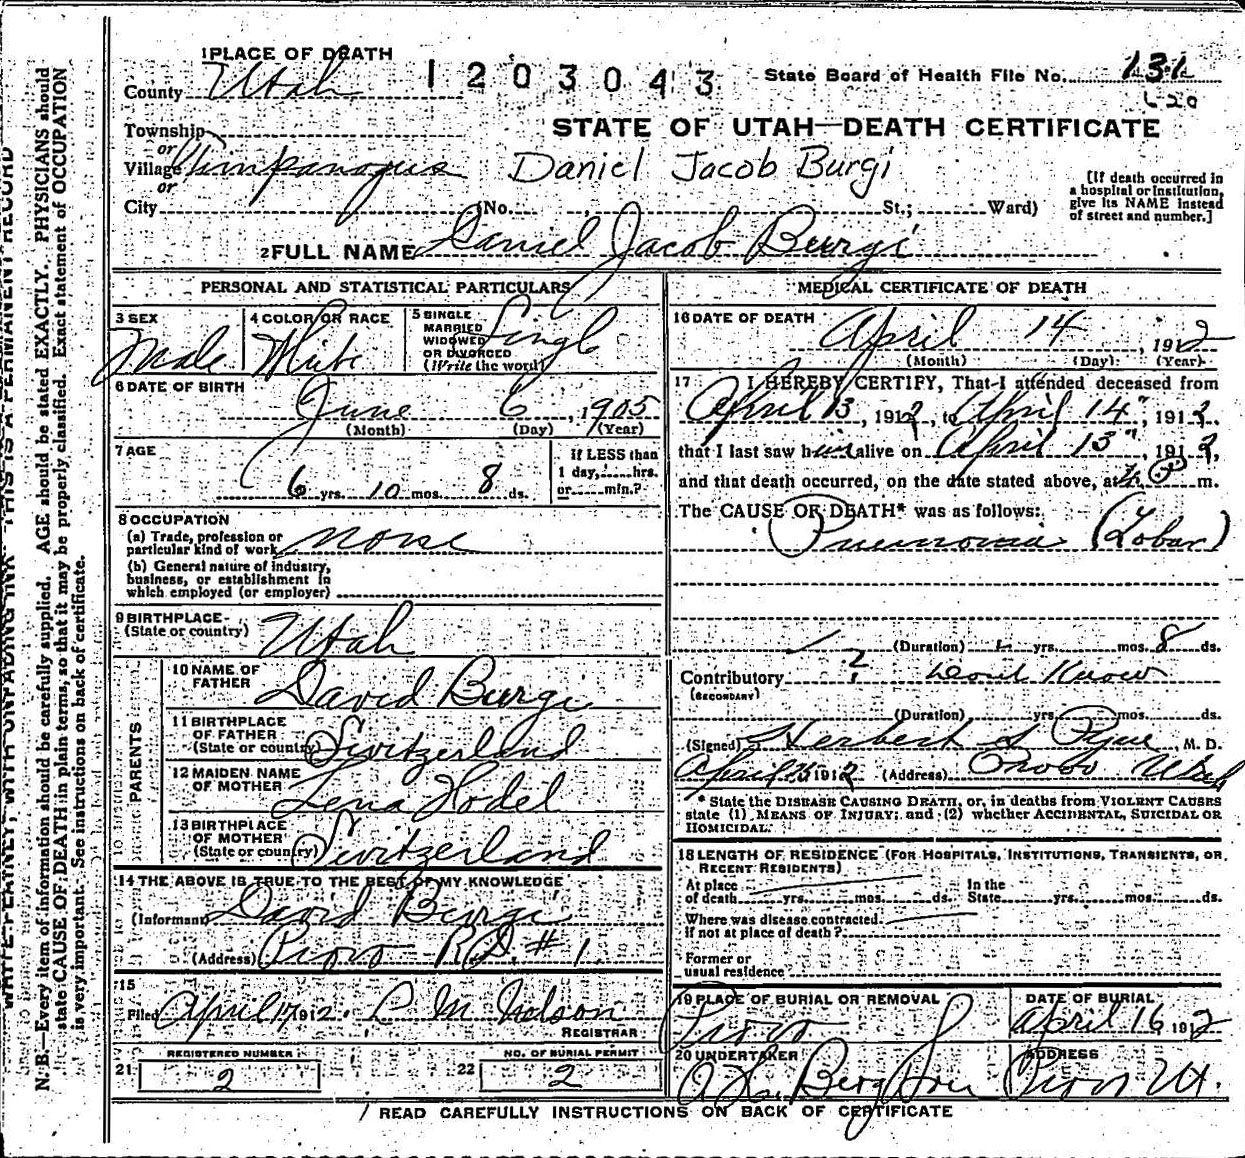 1 PLACE OF DEATH
County Utah
1203043
State Board of Health File No. 131
620
STATE OF UTAH—DEATH CERTIFICATE
Township
or
Village Timpanogus
or
Daniel Jacob Burgi
City (No. St.; Ward)
[If death occurred in a hospital or institution, give its NAME instead of street and number.]
2 FULL NAME Daniel Jacob Burgi
PERSONAL AND STATISTICAL PARTICULARS
3 SEX Male
4 COLOR OR RACE White
5 SINGLE MARRIED WIDOWED OR DIVORCED (Write the word) Single
6 DATE OF BIRTH
June 6, 1905
(Month) (Day) (Year)
7 AGE
6 yrs. 10 mos. 8 ds.
If LESS than 1 day, hrs. or min.?
8 OCCUPATION
(a) Trade, profession or particular kind of work none
(b) General nature of industry, business, or establishment in which employed (or employer)
9 BIRTHPLACE
(State or country) Utah
PARENTS
10 NAME OF FATHER David Burgi
11 BIRTHPLACE OF FATHER (State or country) Switzerland
12 MAIDEN NAME OF MOTHER Lena Hodel
13 BIRTHPLACE OF MOTHER (State or country) Switzerland
14 THE ABOVE IS TRUE TO THE BEST OF MY KNOWLEDGE
(Informant) David Burgi
(Address) Provo R.D. # 1
15
Filed April 17 1912. L M Nelson
REGISTRAR
REGISTERED NUMBER
21 2
NO. OF BURIAL PERMIT
22 2
MEDICAL CERTIFICATE OF DEATH
16 DATE OF DEATH
April 14, 1912
(Month) (Day) (Year)
17 I HEREBY CERTIFY, That I attended deceased from
April 13, 1912, to April 14", 1912.
that I last saw him alive on April 13", 1912,
and that death occurred, on the date stated above, at P m.
The CAUSE OF DEATH* was as follows:
Pneumonia (Lobar)
(Duration) yrs. mos. 8 ds.
Contributory ? Dont Know
(SECONDARY)
(Duration) yrs. mos. ds.
(Signed) Herbert S Pyne, M. D.
April 15 1912 (Address) Provo Utah
* State the DISEASE CAUSING DEATH, or, in deaths from VIOLENT CAUSES state (1) MEANS OF INJURY; and (2) whether ACCIDENTAL, SUICIDAL OR HOMICIDAL.
18 LENGTH OF RESIDENCE (FOR HOSPITALS, INSTITUTIONS, TRANSIENTS, OR RECENT RESIDENTS)
At place of death yrs. mos. ds. In the State yrs. mos. ds.
Where was disease contracted
If not at place of death?
Former or usual residence
19 PLACE OF BURIAL OR REMOVAL
Provo
DATE OF BURIAL
April 16 1912
20 UNDERTAKER
Berg Son
ADDRESS
Provo Ut.
READ CAREFULLY INSTRUCTIONS ON BACK OF CERTIFICATE
WRITE PLAINLY, WITH UNFADING INK—THIS IS A PERMANENT RECORD
N. B.—Every item of information should be carefully supplied. AGE should be stated EXACTLY. PHYSICIANS should
state CAUSE OF DEATH in plain terms, so that it may be properly classified. Exact statement of OCCUPATION
is very important. See instructions on back of certificate.